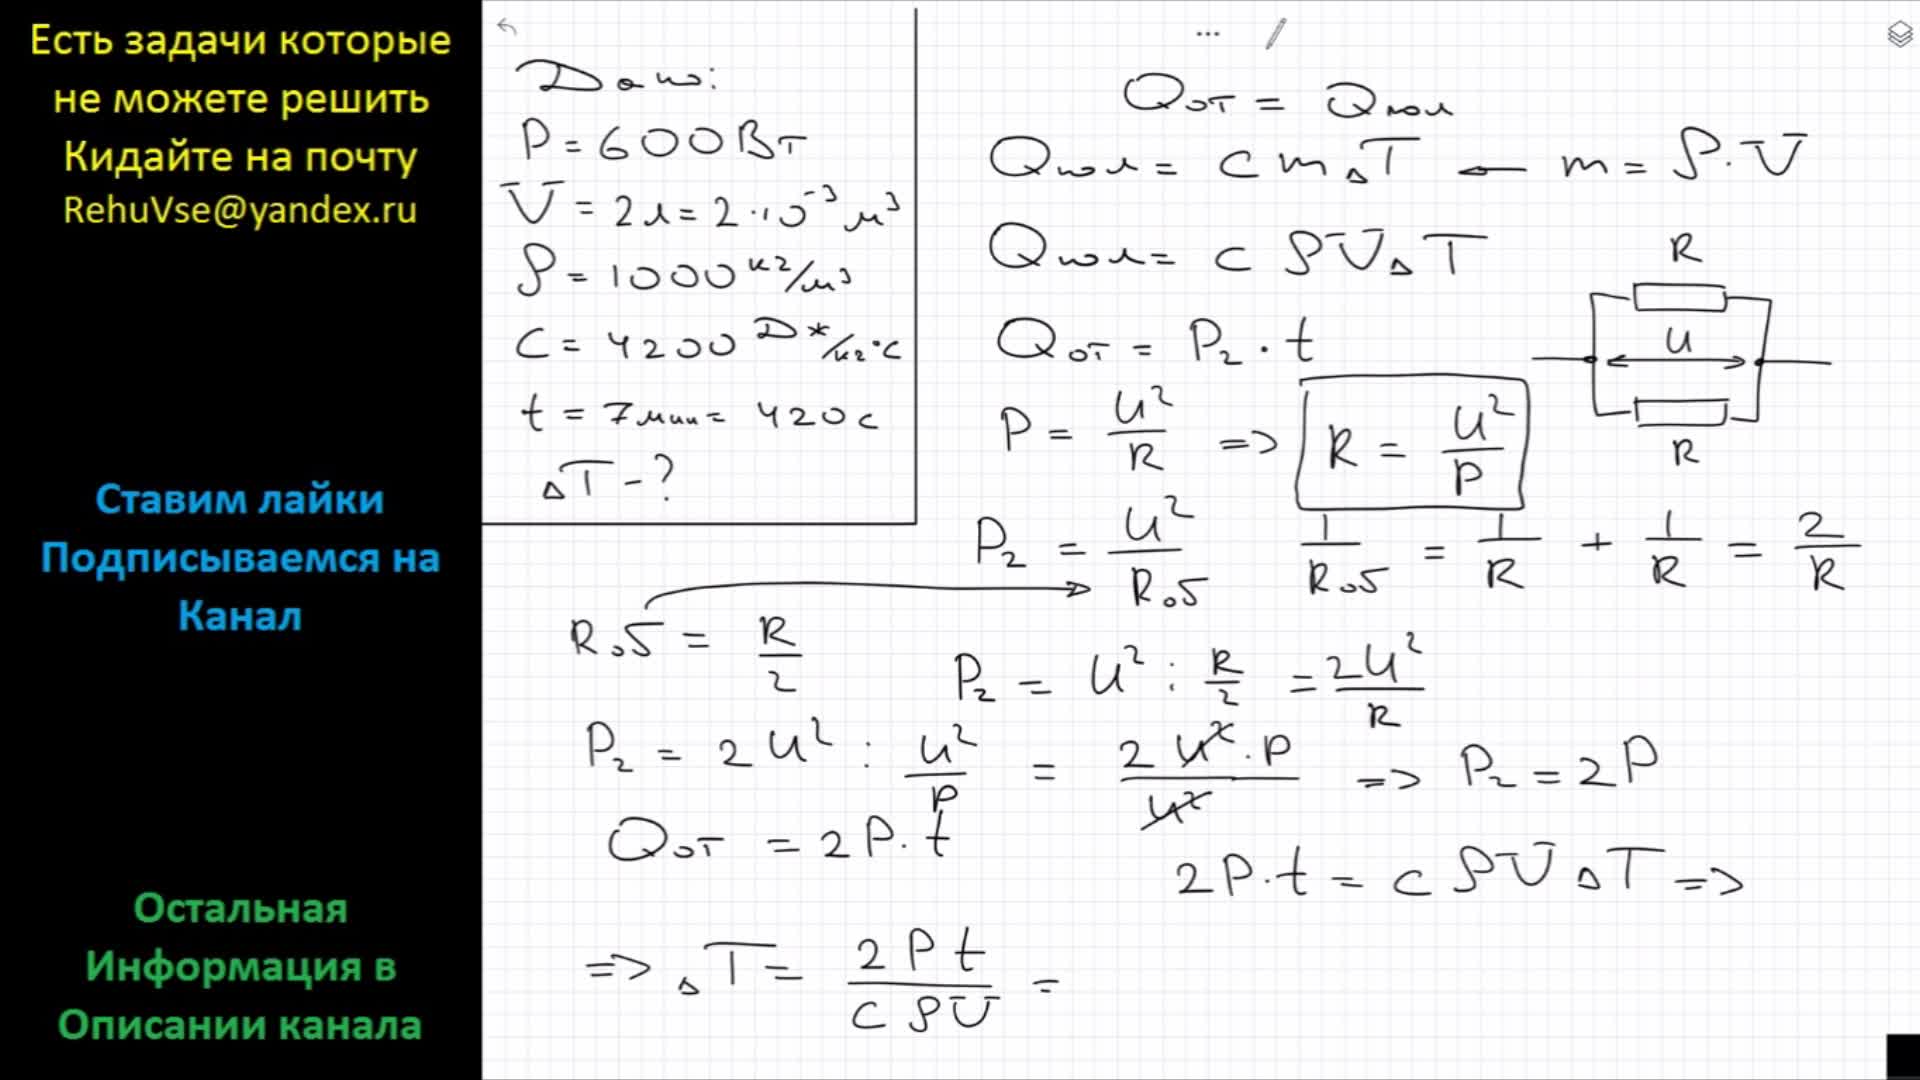 Есть задачи которые
не можете решить
Кидайте на почту
RehuVse@yandex.ru
Ставим лайки
Подписываемся на
Канал
Остальная
Информация в
Описании канала
Дано:
P = 600 Вт
V = 2 л = 2 · 10⁻³ м³
ρ = 1000 кг/м³
C = 4200 Дж/кг·°C
t = 7 мин = 420 с
ΔT - ?
Qот = Qпол
Qпол = c m ΔT ← m = ρ · V
Qпол = c ρ V ΔT
Qот = P₂ · t
R
U
R
P = U²/R => R = U²/P
P₂ = U²/Rоб
1/Rоб = 1/R + 1/R = 2/R
Rоб = R/2
P₂ = U² : R/2 = 2U²/R
P₂ = 2U² : U²/P = 2U²·P/U² => P₂ = 2P
Qот = 2P·t
2P·t = c ρ V ΔT =>
=> ΔT = 2Pt/cρV =